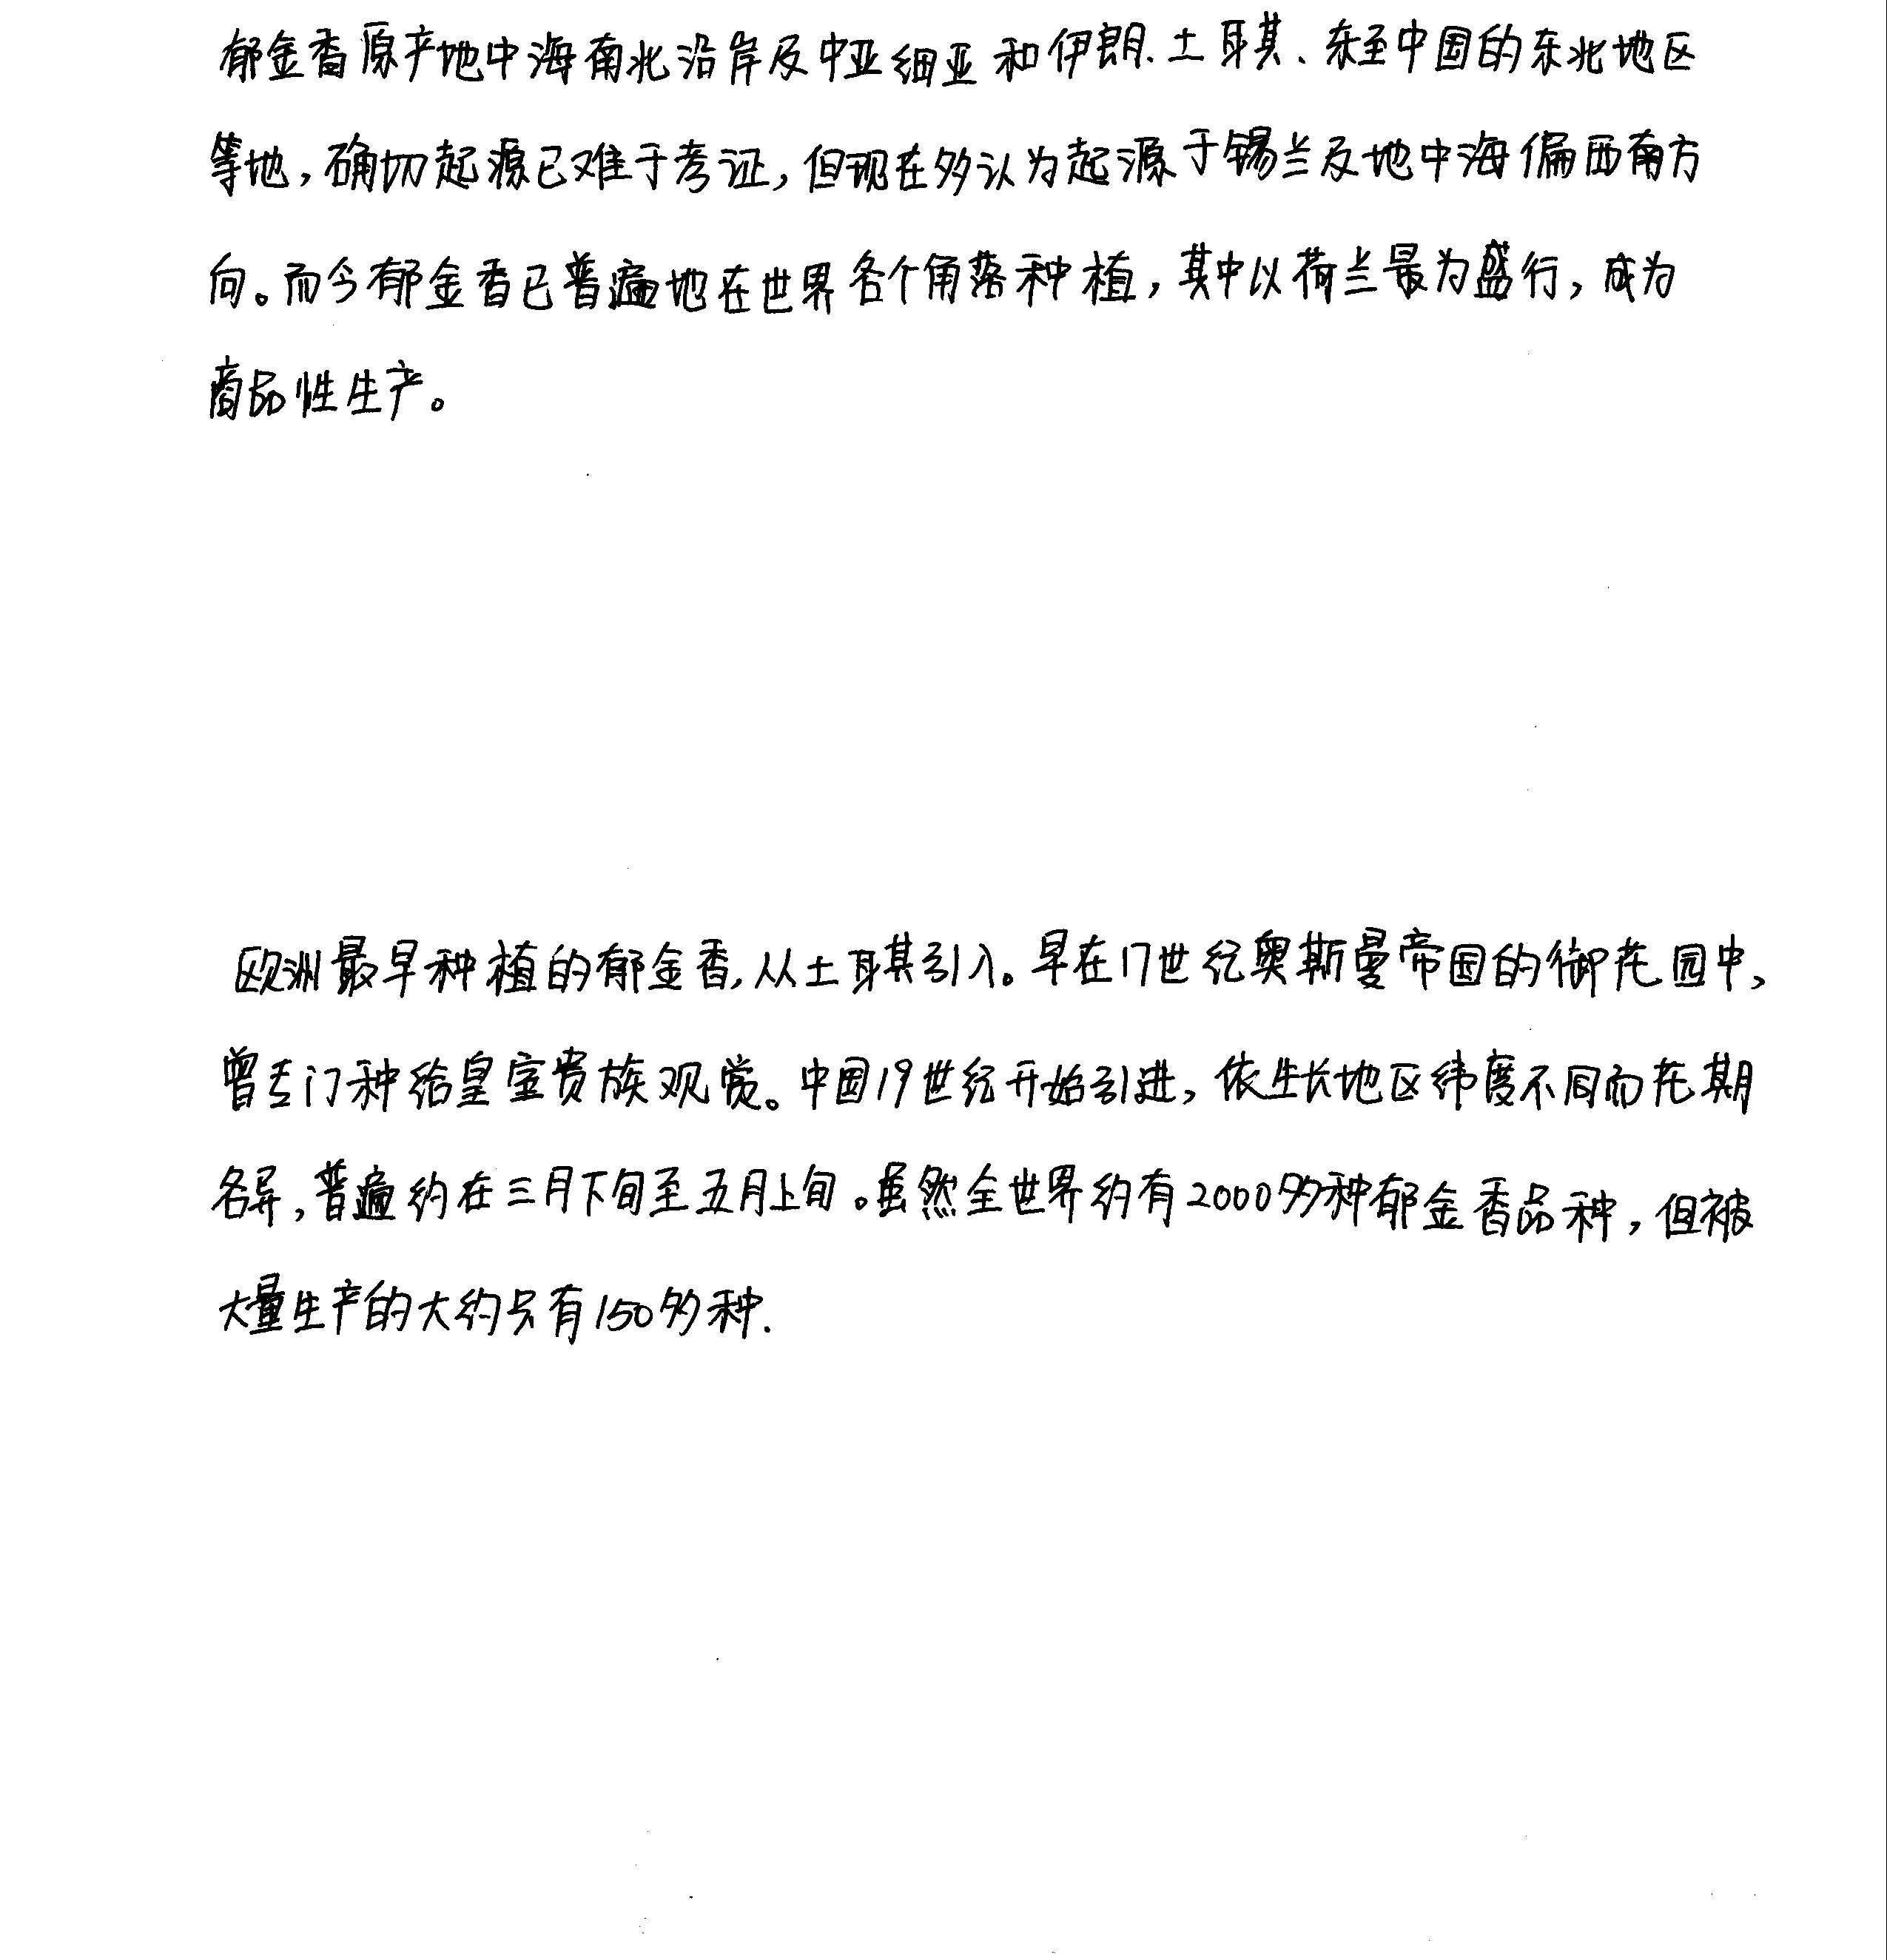 郁金香原产地中海南北沿岸及中亚细亚和伊朗.土耳其、东至中国的东北地区
等地,确切起源已难于考证,但现在多认为起源于锡兰及地中海偏西南方
向。而今郁金香已普遍地在世界各个角落种植,其中以荷兰最为盛行,成为
商品性生产。
欧洲最早种植的郁金香,从土耳其引入。早在17世纪奥斯曼帝国的御花园中,
曾专门种给皇室贵族观赏。中国19世纪开始引进,依生长地区纬度不同而花期
各异,普遍约在三月下旬至五月上旬。虽然全世界约有2000多种郁金香品种,但被
大量生产的大约只有150多种.